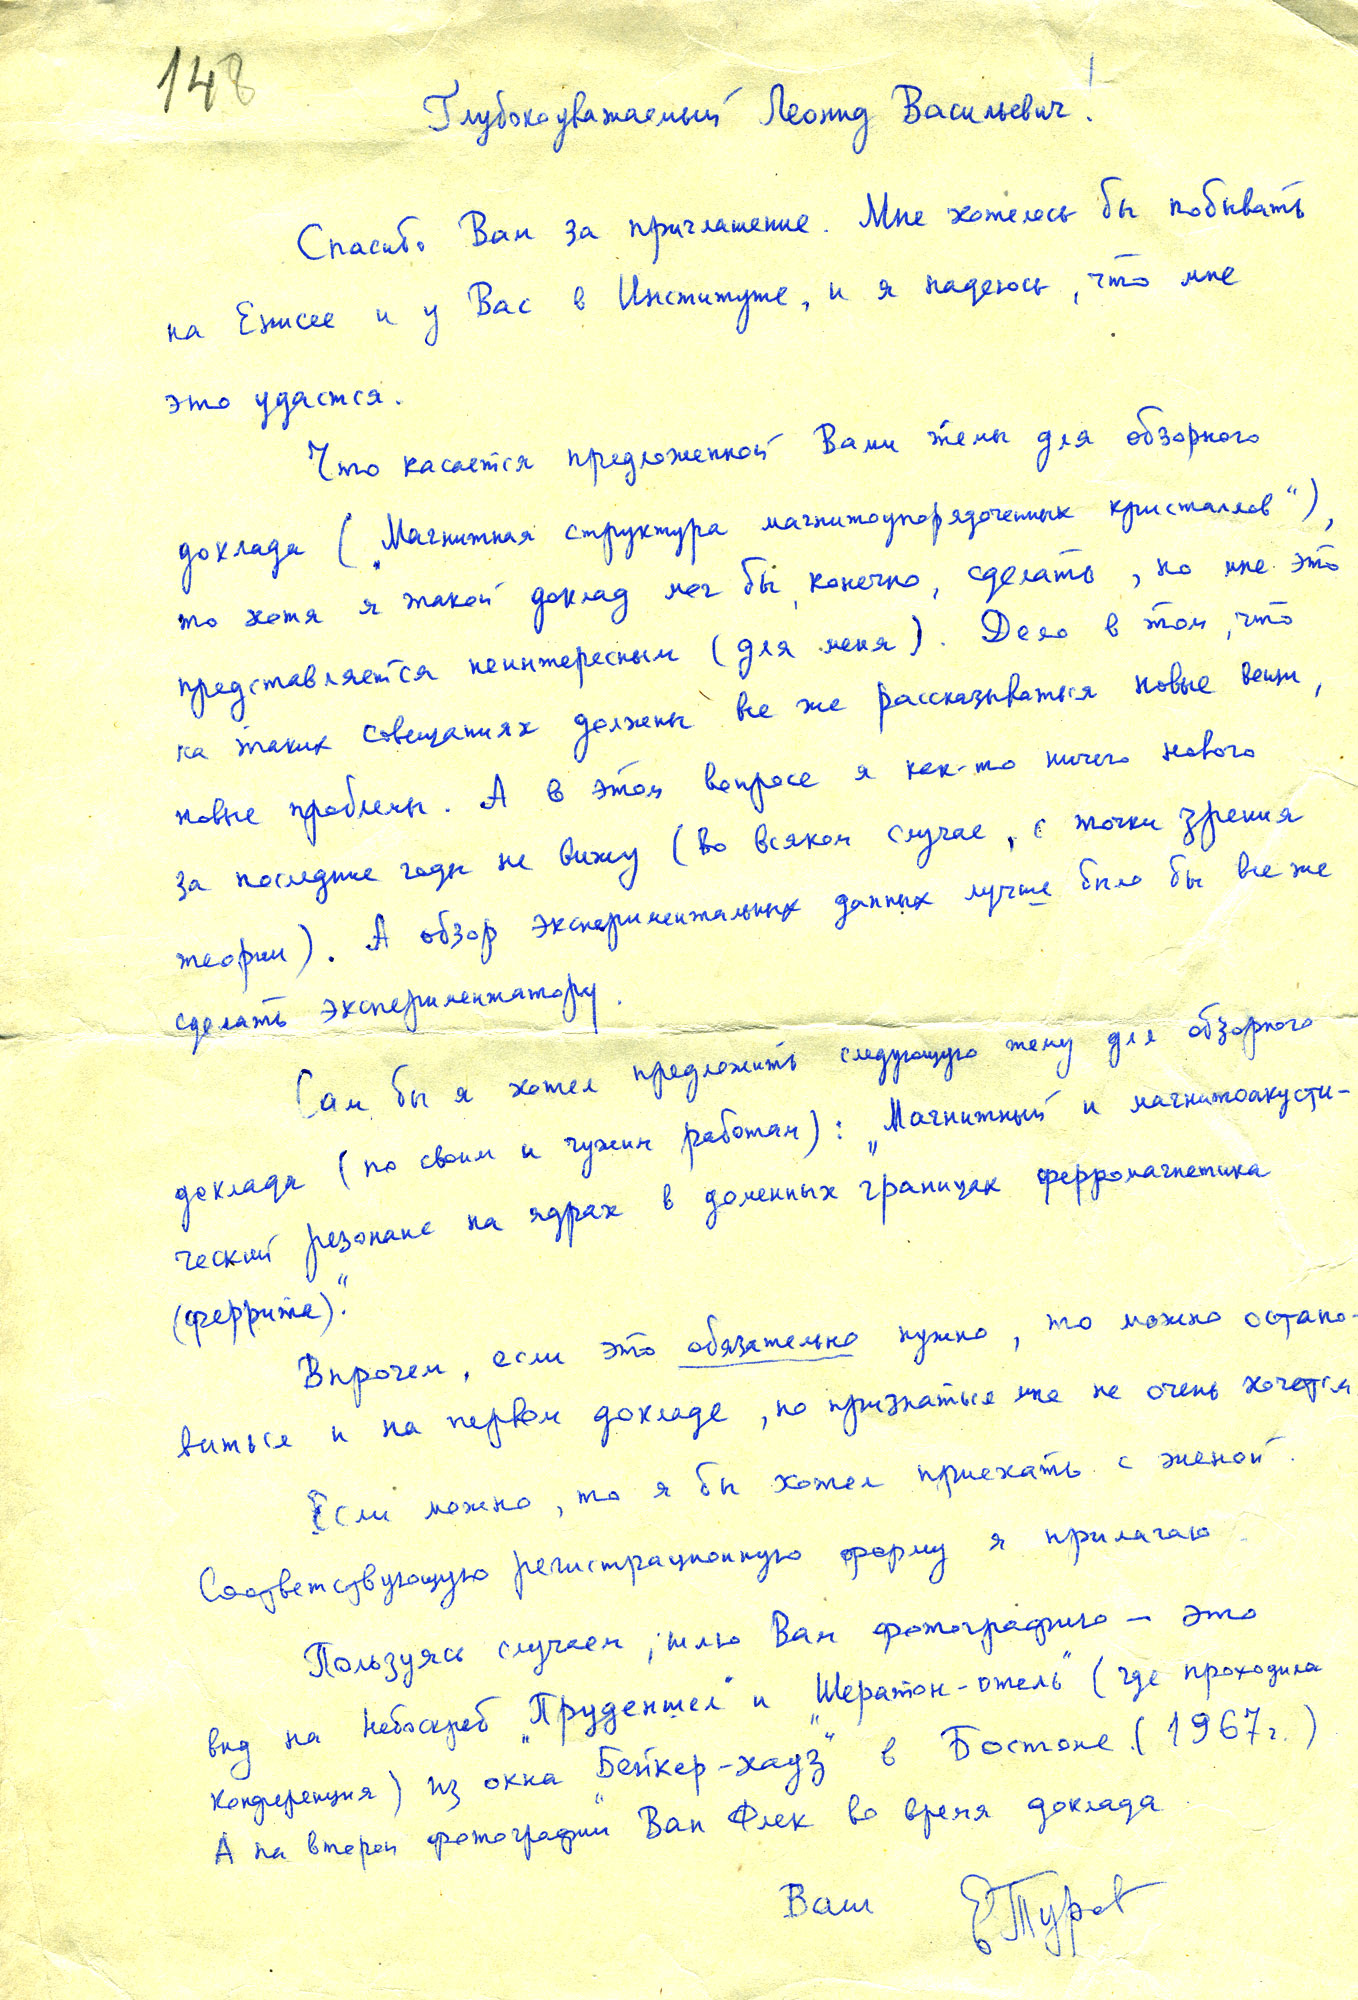 148
Глубокоуважаемый Леонид Васильевич!
Спасибо Вам за приглашение. Мне хотелось бы побывать
на Енисее и у Вас в Институте, и я надеюсь, что мне
это удастся.
Что касается предложенной Вами темы для обзорного
доклада („Магнитная структура магнитоупорядоченных кристаллов"),
то хотя я такой доклад мог бы, конечно, сделать, но мне это
представляется неинтересным (для меня). Дело в том, что
на таких совещаниях должны все же рассказываться новые вещи,
новые проблемы. А в этом вопросе я как-то ничего нового
за последние годы не вижу (во всяком случае, с точки зрения
теории). А обзор экспериментальных данных лучше было бы все же
сделать экспериментатору.
Сам бы я хотел предложить следующую тему для обзорного
доклада (по своим и чужим работам): „Магнитный и магнитоакусти-
ческий резонанс на ядрах в доменных границах ферромагнетика
(феррита)."
Впрочем, если это обязательно нужно, то можно остано-
виться и на первом докладе, но признаться мне не очень хочется
Если можно, то я бы хотел приехать с женой.
Соответствующую регистрационную форму я прилагаю.
Пользуясь случаем, шлю Вам фотографию – это
вид на небоскреб „Пруденшел" и „Шератон-отель" (где проходила
конференция) из окна „Бейкер-хауз" в Бостоне (1967 г.)
А на второй фотографии Ван Флек во время доклада.
Ваш ЕТуров